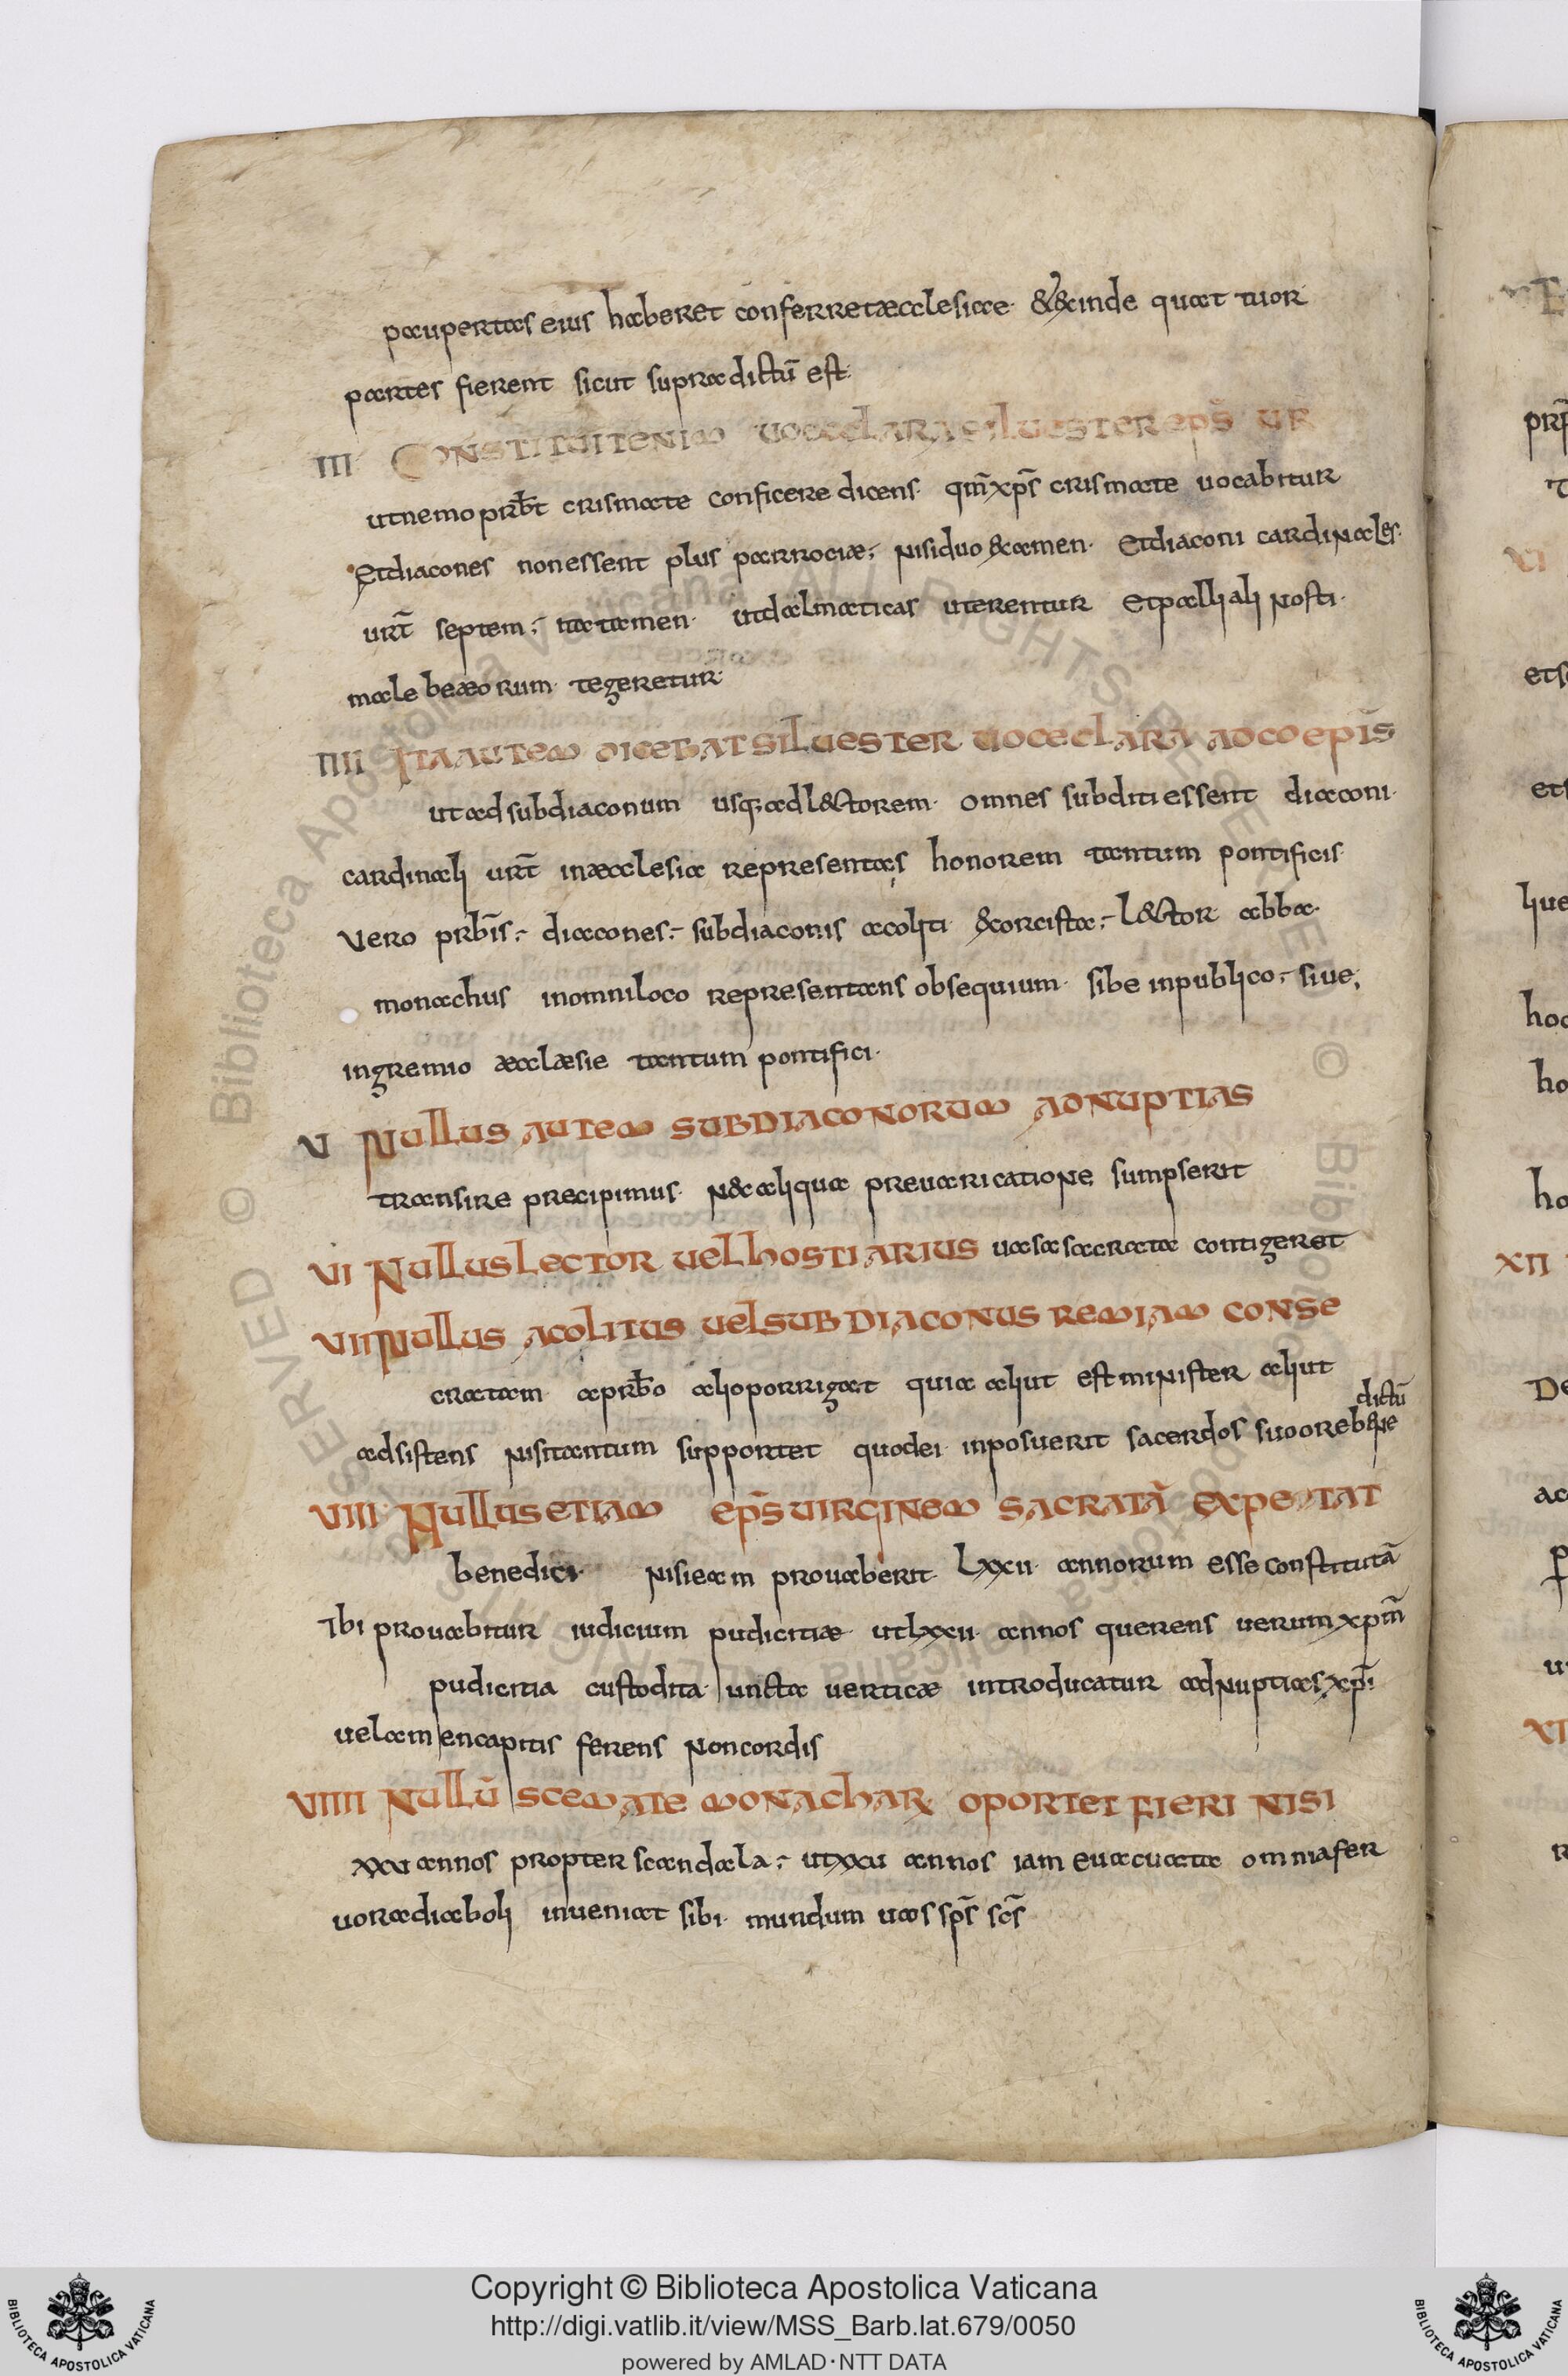 paupertas eius haberet conferret æcclesiae · & exinde quat tuor
partes fierent sicut supra dictū est ·
III CONSTITUIT ENIM VOCE CLARA SILVESTER EPS̄ UR
ut nemo prb̄t crismate conficere dicens · qm̄ xp̄s crismate vocabitur
Et diacones non essent plus parrociæ ; nisi duo examen · Et diaconi cardinales ·
urt̄ septem ; ita tamen · ut dalmaticas uterentur Et palli ali nosti ·
male beæorum · tegeretur ·
IIII ITA AUTEM DICEBAT SILVESTER VOCE CLARA AD COEPIS̄
ut ad subdiaconum usq; ad l&torem · omnes subditi essent diaconi ·
cardinali urt̄ in æcclesia representas honorem tantum pontificis
Vero prb̄is ; diacones ; subdiaconis acoliti exorcista ; l&tor abba ·
monachus in omni loco representans obsequium · sibe in publico ; sive ;
in gremio æcclæsie tantum pontifici ·
V NULLUS AUTEM SUBDIACONORUM AD NUPTIAS
transire precipimus · ne aliqua prevaricatione sumpserit
VI NULLUS LECTOR VEL HOSTIARIUS vasa sacrata contigeret
VII NULLUS ACOLITUS VEL SUBDIACONUS REMIAM CONSE
cratam a prb̄o alio porrigat quia aliut est minister aliut
adsistens nisi tantum supportet quod ei inposuerit sacerdos suo ore bene dictū
VIII NULLUS ETIAM EPS̄ VIRGINEM SACRATĀ EXPECTAT
benedici · nisi eam provaberit · Lxxii · annorum esse constitutā
Ibi provabitur iudicium pudicitiæ · ut lxxii · annos querens verum xpm̄
pudicitia custodita · iuncta verticæ introducatur ad nuptias xpi ·
velamen capitis ferens non cordis
VIIII NULLŪ SCEMATE MONACHAR OPORTET FIERI NISI
xxv annos propter scandala ; ut xxu annos iam evacuata omnia fer
vora diaboli inveniat sibi · mundum vas sps̄ scs̄
Copyright © Biblioteca Apostolica Vaticana
http://digi.vatlib.it/view/MSS_Barb.lat.679/0050
powered by AMLAD·NTT DATA